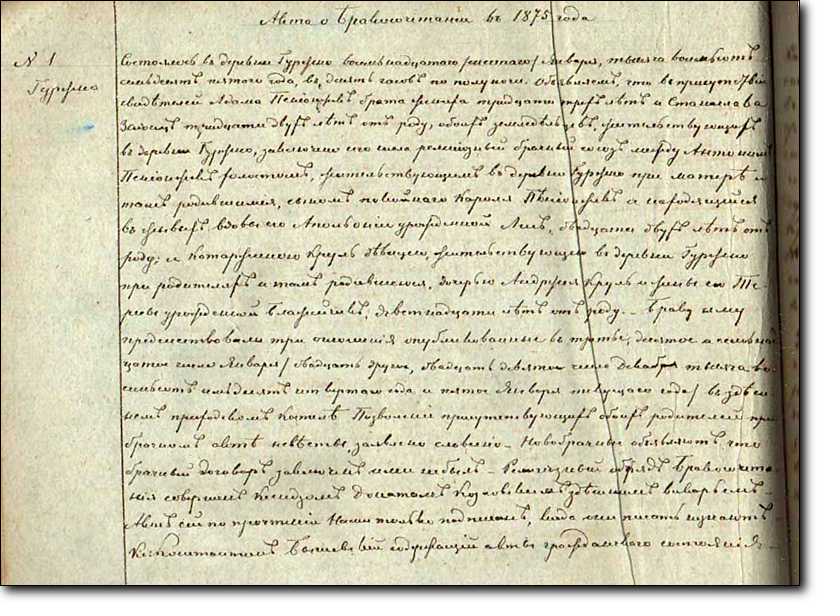 Акта о Бракосочетании въ 1875 года
N 1
Гуржно
Состоялось въ деревни Гуржно восемьнадцатаго /шестаго/ Января, тысяча восемьсотъ
семьдесятъ пятого года, въ десять часовъ по полуночи. Объявляемъ, что въ присутствіи
свидѣтелей Адама брата жениха тридцати трехъ лѣтъ и Станислава
тридцати двухъ лѣтъ отъ роду, обоихъ земледѣльцевъ, жительствующихъ
въ деревни Гуржно, заключено сего числа религіозный брачный союзъ между Антонимъ
холостымъ, жительствующемъ въ деревни Гуржно при матерѣ и
тамъ родившимся, сыномъ покойнаго Кароля а находящейся
въ живыхъ вдовы его Апольоніи урожденной двадцати двухъ лѣтъ отъ
роду; и Катаржиною Круль дѣвицею, жительствующею въ деревни Гуржно
при родителяхъ и тамъ родившеюся, дочерью Андржея Круль и жены его Те-
ресы урожденной девятнадцати лѣтъ отъ роду. Браку сему
предшествовали три оглошенія опубликованные въ третье, десятое и семьнад-
цатое число Января / двадцать другое, двадцать девятое число Декабря тысяча во-
семьсотъ семьдесятъ четвертаго года и пятое Января текущаго года / въ здѣш-
немъ приходскомъ костелѣ Позволеніе присутствующихъ обоихъ родителей при
брачномъ актѣ невѣсты, заявлено словесно – Новобрачные объявляютъ, что
брачный договоръ заключенъ ими небылъ – Религіозный обрядъ бракосочета-
нія совершенъ Ксендзомъ Донатомъ здѣшнимъ викарьемъ –
Актъ сей по прочтеніи Нами только подписанъ, писать незнаютъ –
содержащій акты гражданскаго состоянія –